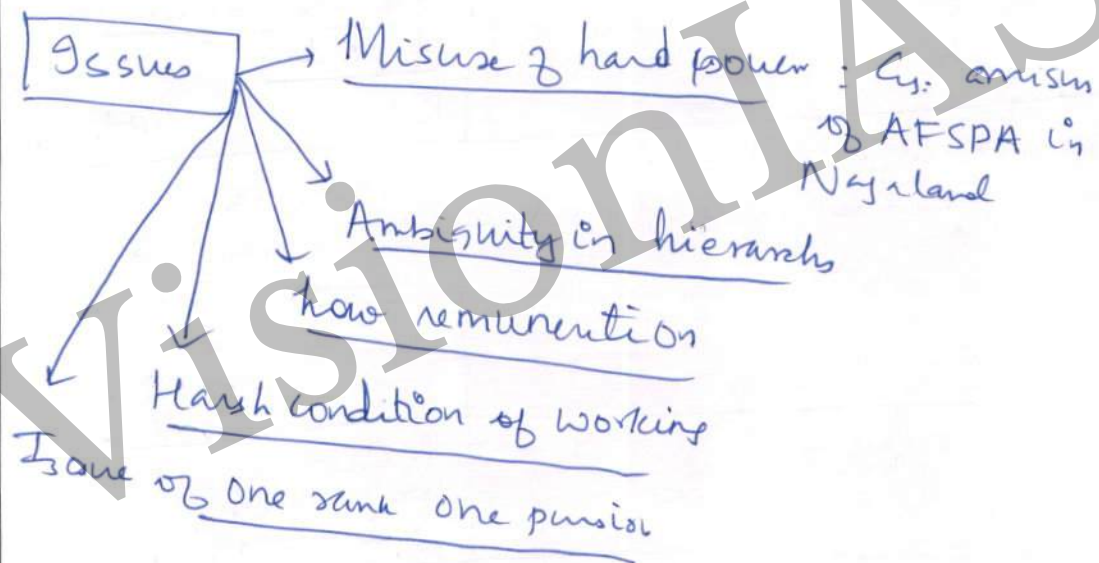 Issues
Misuse of hard power : Eg:
of AFSPA in
Nagaland
Ambiguity in hierarchy
Low remuneration
Harsh condition of working
Issue of one rank one pension
VisionIAS